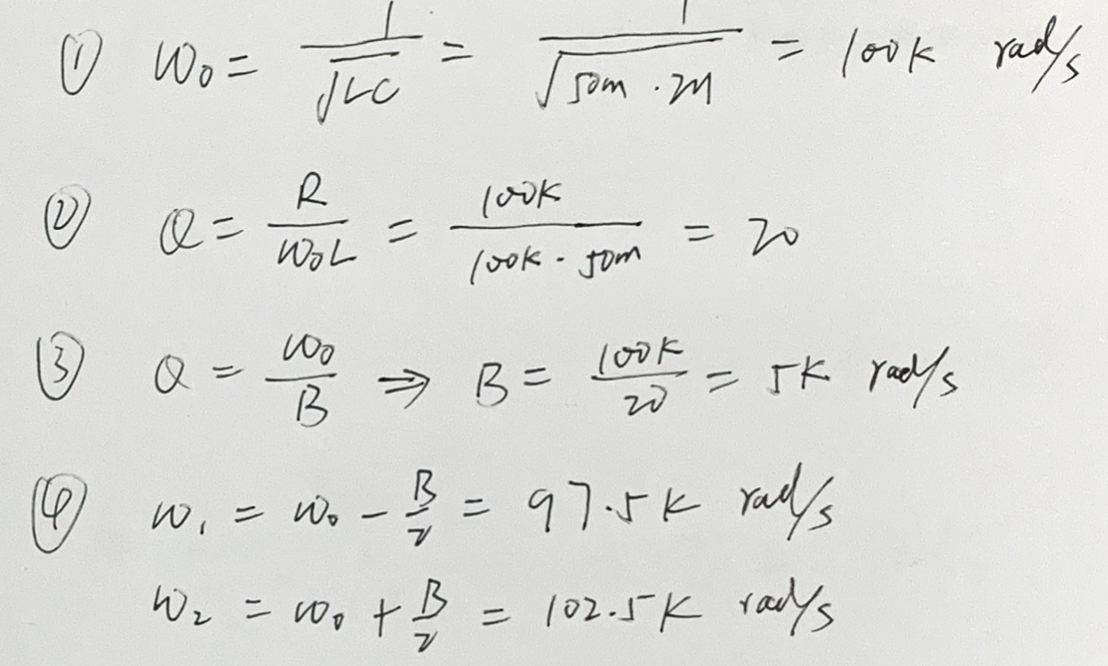 ① ω₀ = 1/√LC = 1/√50m · 2n = 100k rad/s
② Q = R/ω₀L = 100k/100k · 50m = 20
③ Q = ω₀/B ⇒ B = 100k/20 = 5k rad/s
④ ω₁ = ω₀ - B/2 = 97.5k rad/s
ω₂ = ω₀ + B/2 = 102.5k rad/s